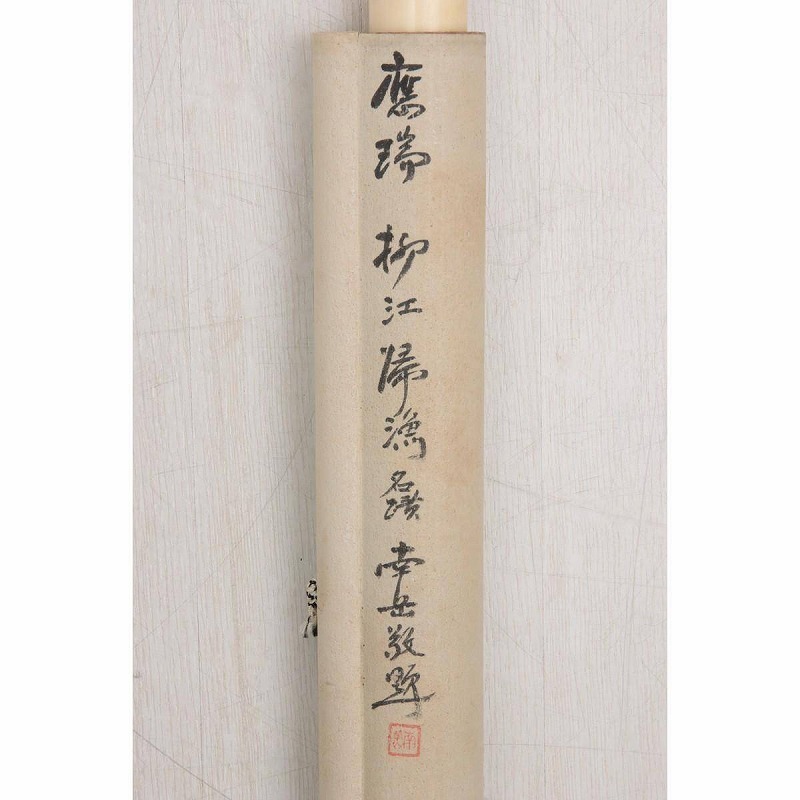 應瑞 柳江歸漁 名蹟 南岳敬題